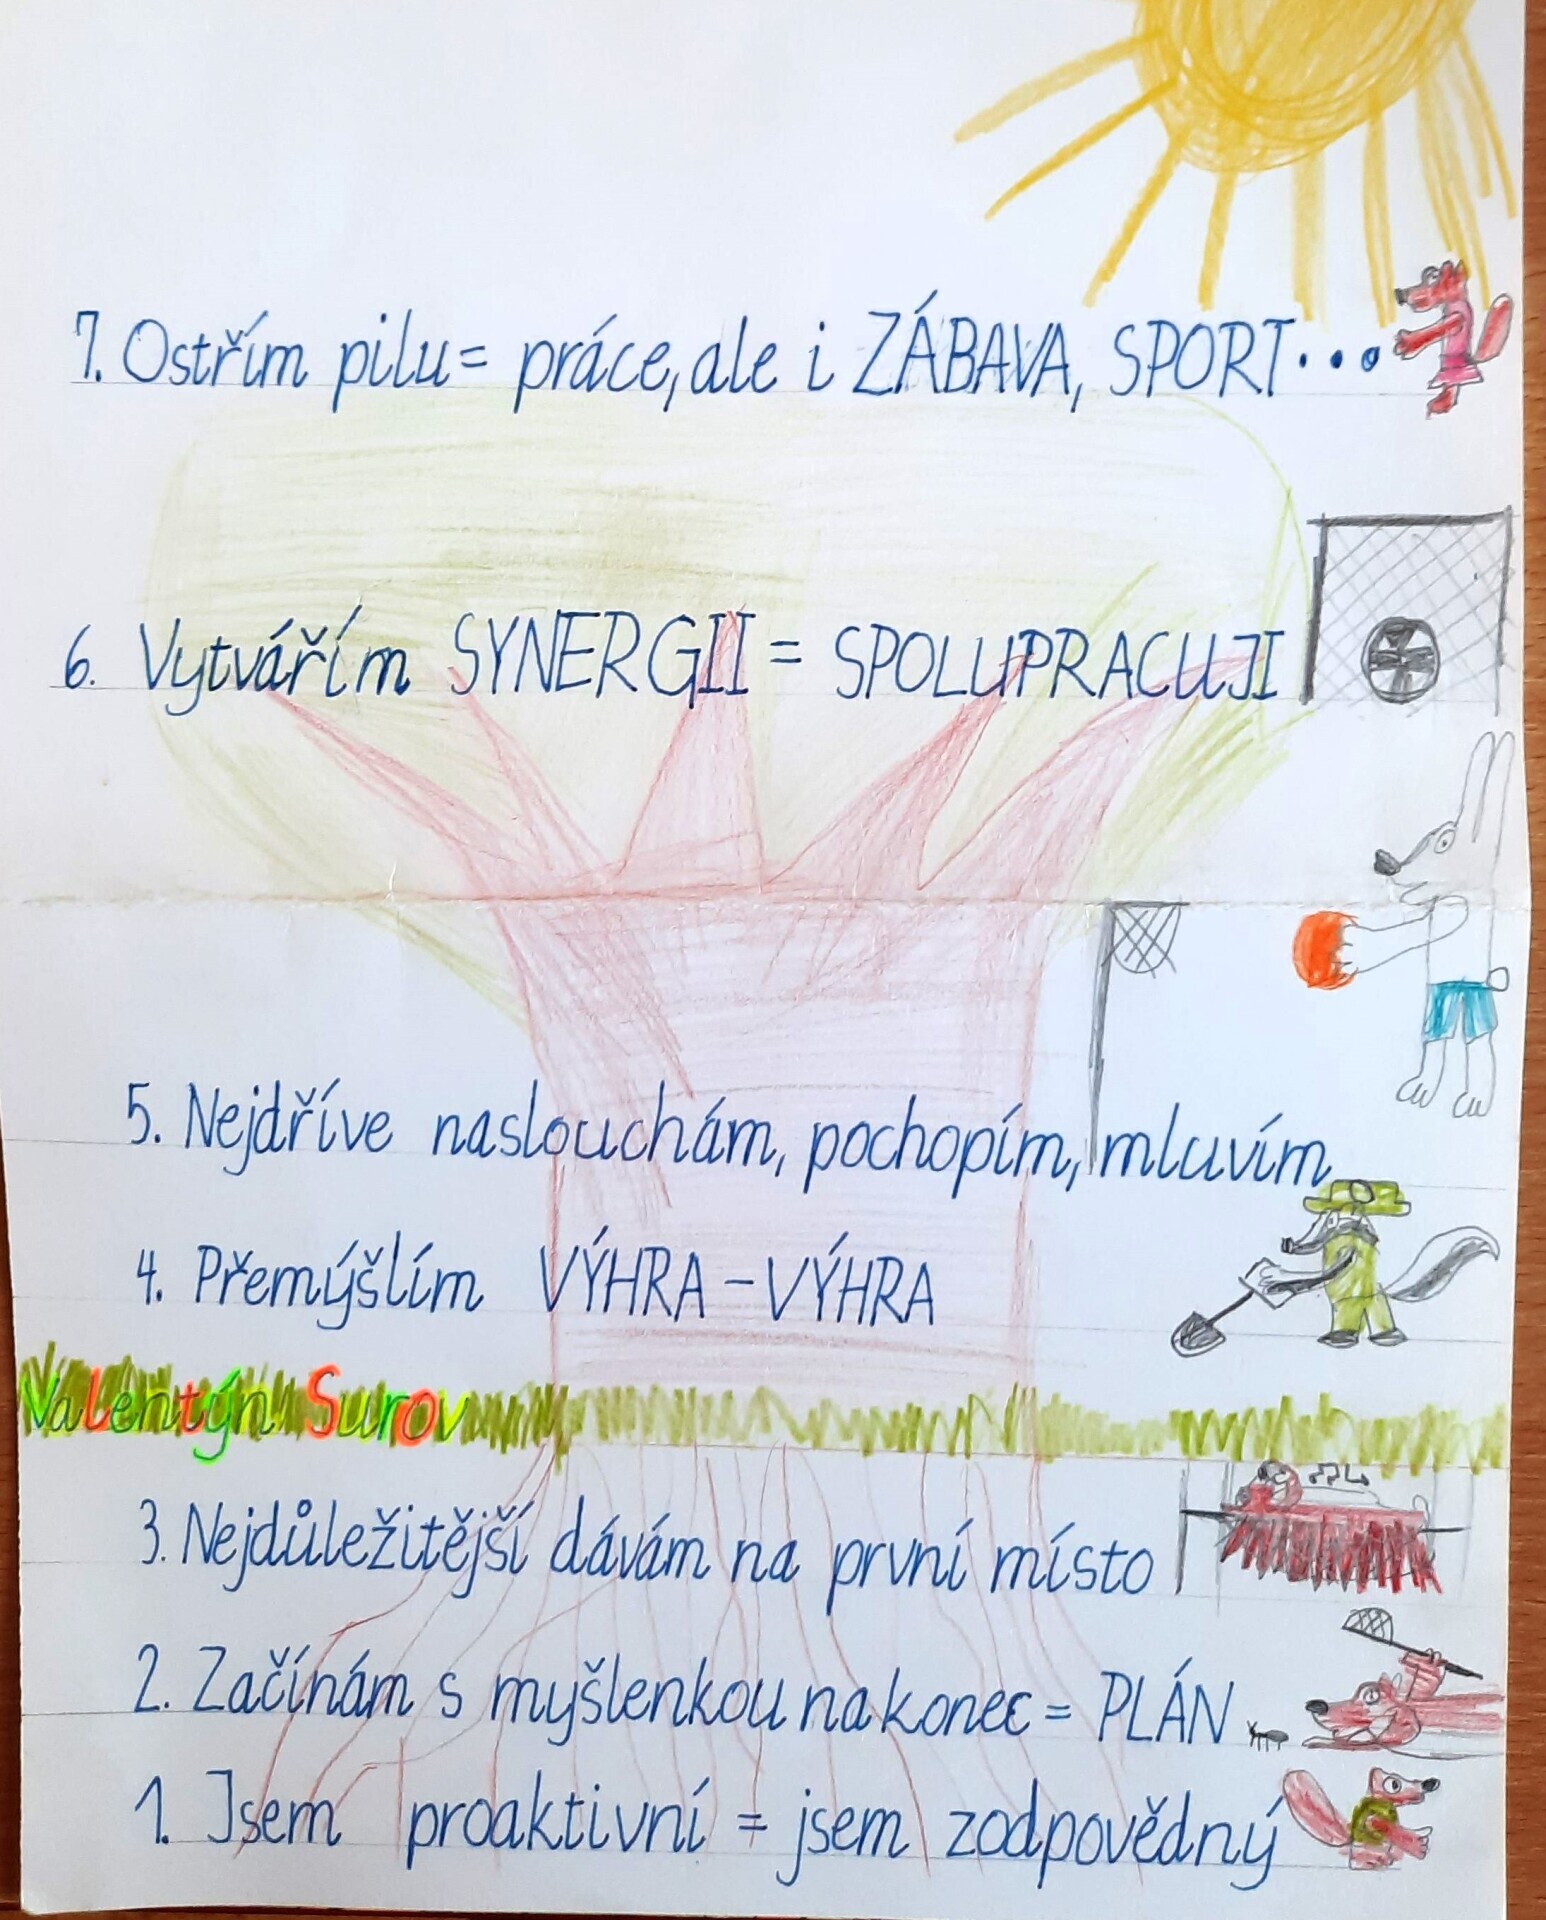 7. Ostřím pilu = práce, ale i ZÁBAVA, SPORT...
6. Vytvářím SYNERGII = SPOLUPRACUJI
5. Nejdříve naslouchám, pochopím, mluvím
4. Přemýšlím VÝHRA - VÝHRA
Valentýn Surov
3. Nejdůležitější dávám na první místo
2. Začínám s myšlenkou na konec = PLÁN
1. Jsem proaktivní = jsem zodpovědný